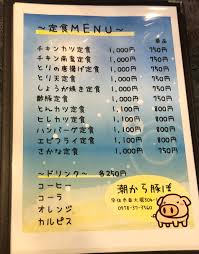 ～定食MENU～
単品
チキンカツ定食 1,000円 750円
チキン南蛮定食 1,000円 750円
とりの唐揚げ定食 1,000円 750円
とり天定食 1,000円 750円
しょうが焼き定食 1,000円 750円
酢豚定食 1,000円 750円
とんカツ定食 1,100円 800円
ヒレカツ定食 1,100円 800円
ハンバーグ定食 1,100円 800円
エビフライ定食 1,100円 800円
さかな定食 1,000円 750円
～ドリンク～ 各250円
コーヒー
コーラ
オレンジ
カルピス
潮から豚ぼ
0978-37-3960